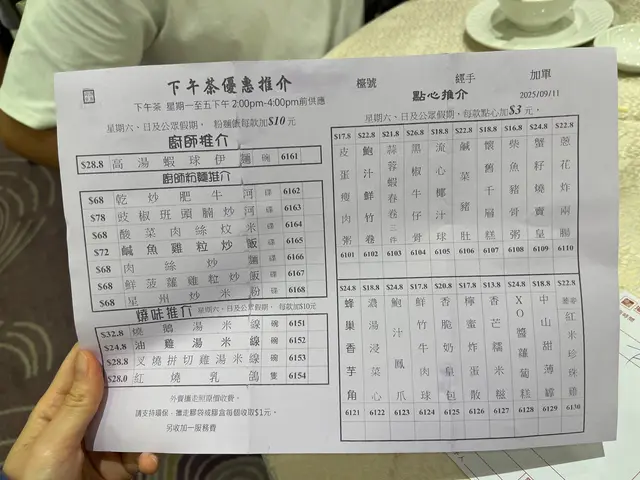 下午茶優惠推介
下午茶 星期一至五下午 2:00pm-4:00pm前供應
星期六、日及公眾假期, 粉麵飯每款加$10元
廚師推介
$28.8 高湯蝦球伊麵 碗 6161
廚師粉麵推介
$68 乾炒肥牛河 碟 6162
$78 豉椒班頭腩炒河 碟 6163
$68 酸菜肉絲炆米 碟 6164
$72 鹹魚雞粒炒飯 碟 6165
$68 肉絲炒麵 碟 6166
$68 鮮菠蘿雞粒炒飯 碟 6167
$68 星州炒米粉 碟 6168
燒味推介 星期六、日及公眾假期, 每款加$10元
$32.8 燒鵝湯米線 碗 6151
$24.8 油雞湯米線 碗 6152
$28.8 叉燒拼切雞湯米線 碗 6153
$28.0 紅燒乳鴿 隻 6154
外賣攜走照原價收費。
請支持環保,攜走膠袋或膠盒每個收取$1元。
另收加一服務費
檯號 經手 加單
點心推介 2025/09/11
星期六、日及公眾假期, 每款點心加$3元。
$17.8 皮蛋瘦肉粥 6101
$22.8 鮑汁鮮竹卷 6102
$21.8 蒜蓉蝦春卷 三件 6103
$26.8 黑椒牛仔骨 6104
$18.8 流心椰汁球 6105
$22.8 鹹菜豬肚 6106
$18.8 懷舊千層糕 6107
$16.8 柴魚豬骨粥 6108
$24.8 蟹籽燒賣皇 6109
$22.8 蔥花炸兩腸 6110
$24.8 蜂巢香芋角 6121
$18.8 濃湯浸菜心 6122
$24.8 鮑汁鳳爪 6123
$18.8 鮮竹牛肉球 6124
$18.8 香脆奶皇包 6125
$18.8 檸蜜 散 6126
$13.8 香芒糯米糍 6127
$24.8 XO醬蘿蔔糕 6128
$18.8 中山甜薄罉 6129
$22.8 紅米珍珠雞 6130